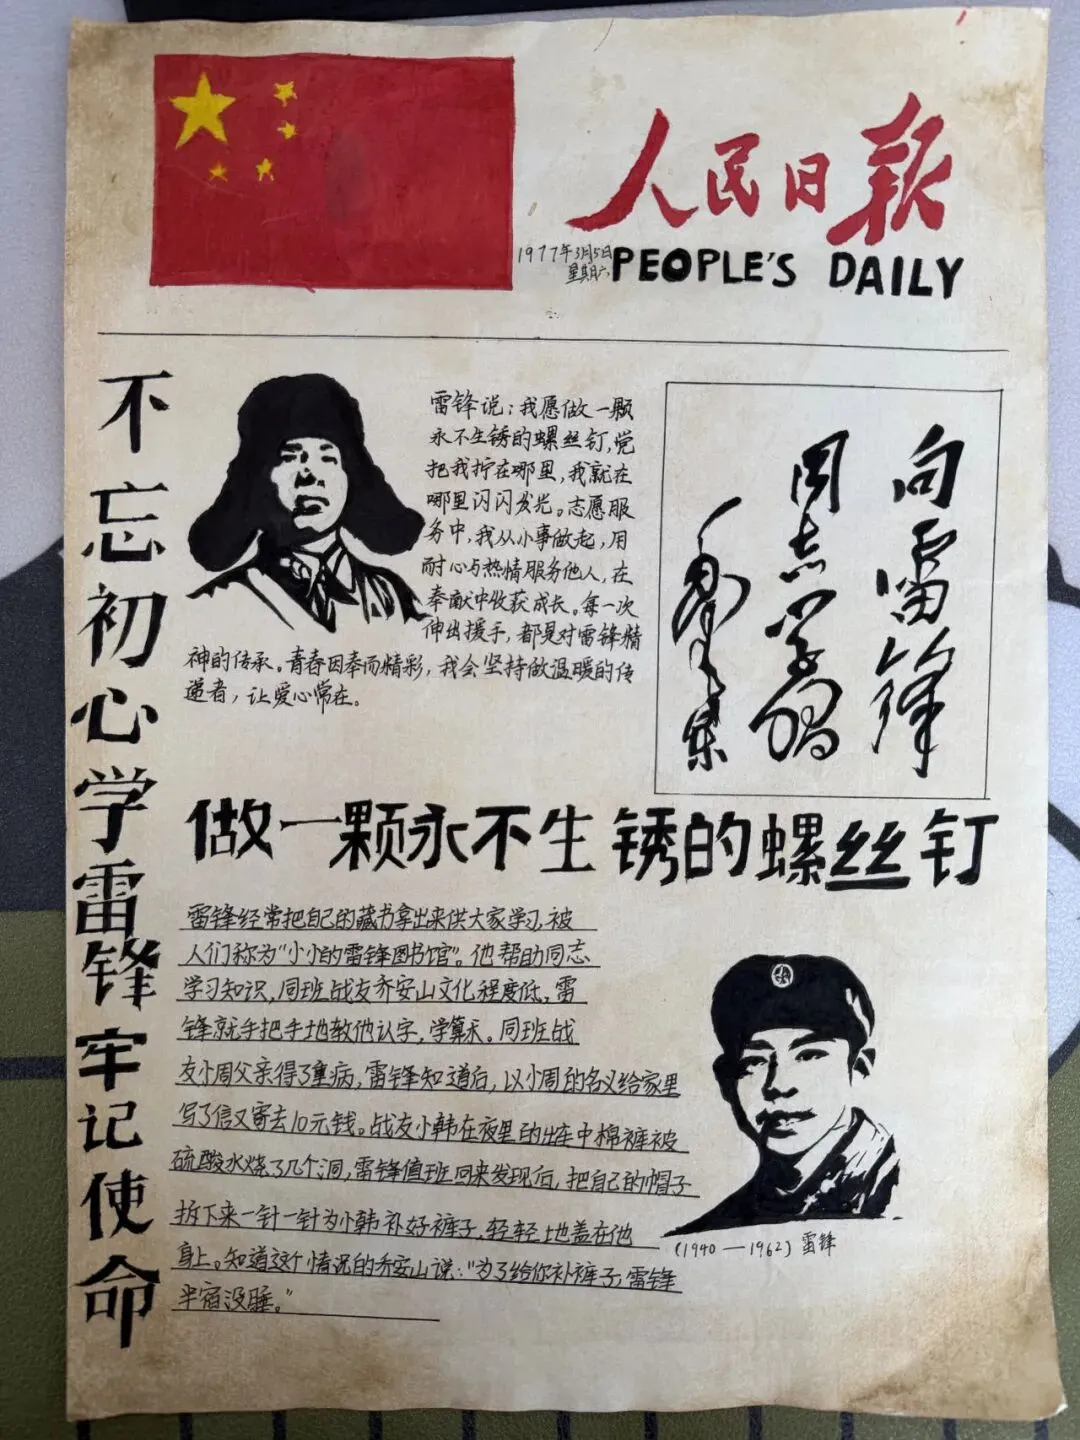 人民日报
1977年3月5日
星期六
PEOPLE'S DAILY
不忘初心学雷锋牢记使命
雷锋说:我愿做一颗
永不生锈的螺丝钉,党
把我拧在哪里,我就在
哪里闪闪发光。志愿服
务中,我从小事做起,用
耐心与热情服务他人,在
奉献中收获成长。每一次
伸出援手,都是对雷锋精
神的传承。青春因奉而精彩,我会坚持做温暖的传
递者,让爱心常在。
向雷锋
同志学习
毛泽东
做一颗永不生锈的螺丝钉
雷锋经常把自己的藏书拿出来供大家学习,被
人们称为"小小的雷锋图书馆"。他帮助同志
学习知识,同班战友乔安山文化程度低,雷
锋就手把手地教他认字,学算术。同班战
友小周父亲得了重病,雷锋知道后,以小周的名义给家里
写了信又寄去10元钱。战友小韩在夜里的出车中棉裤被
硫酸水烧了几个洞,雷锋值班回来发现后,把自己的帽子
拆下来一针一针为小韩补好裤子,轻轻地盖在他
身上。知道这个情况的乔安山说:"为了给你补裤子,雷锋
半宿没睡。"
(1940—1962)雷锋